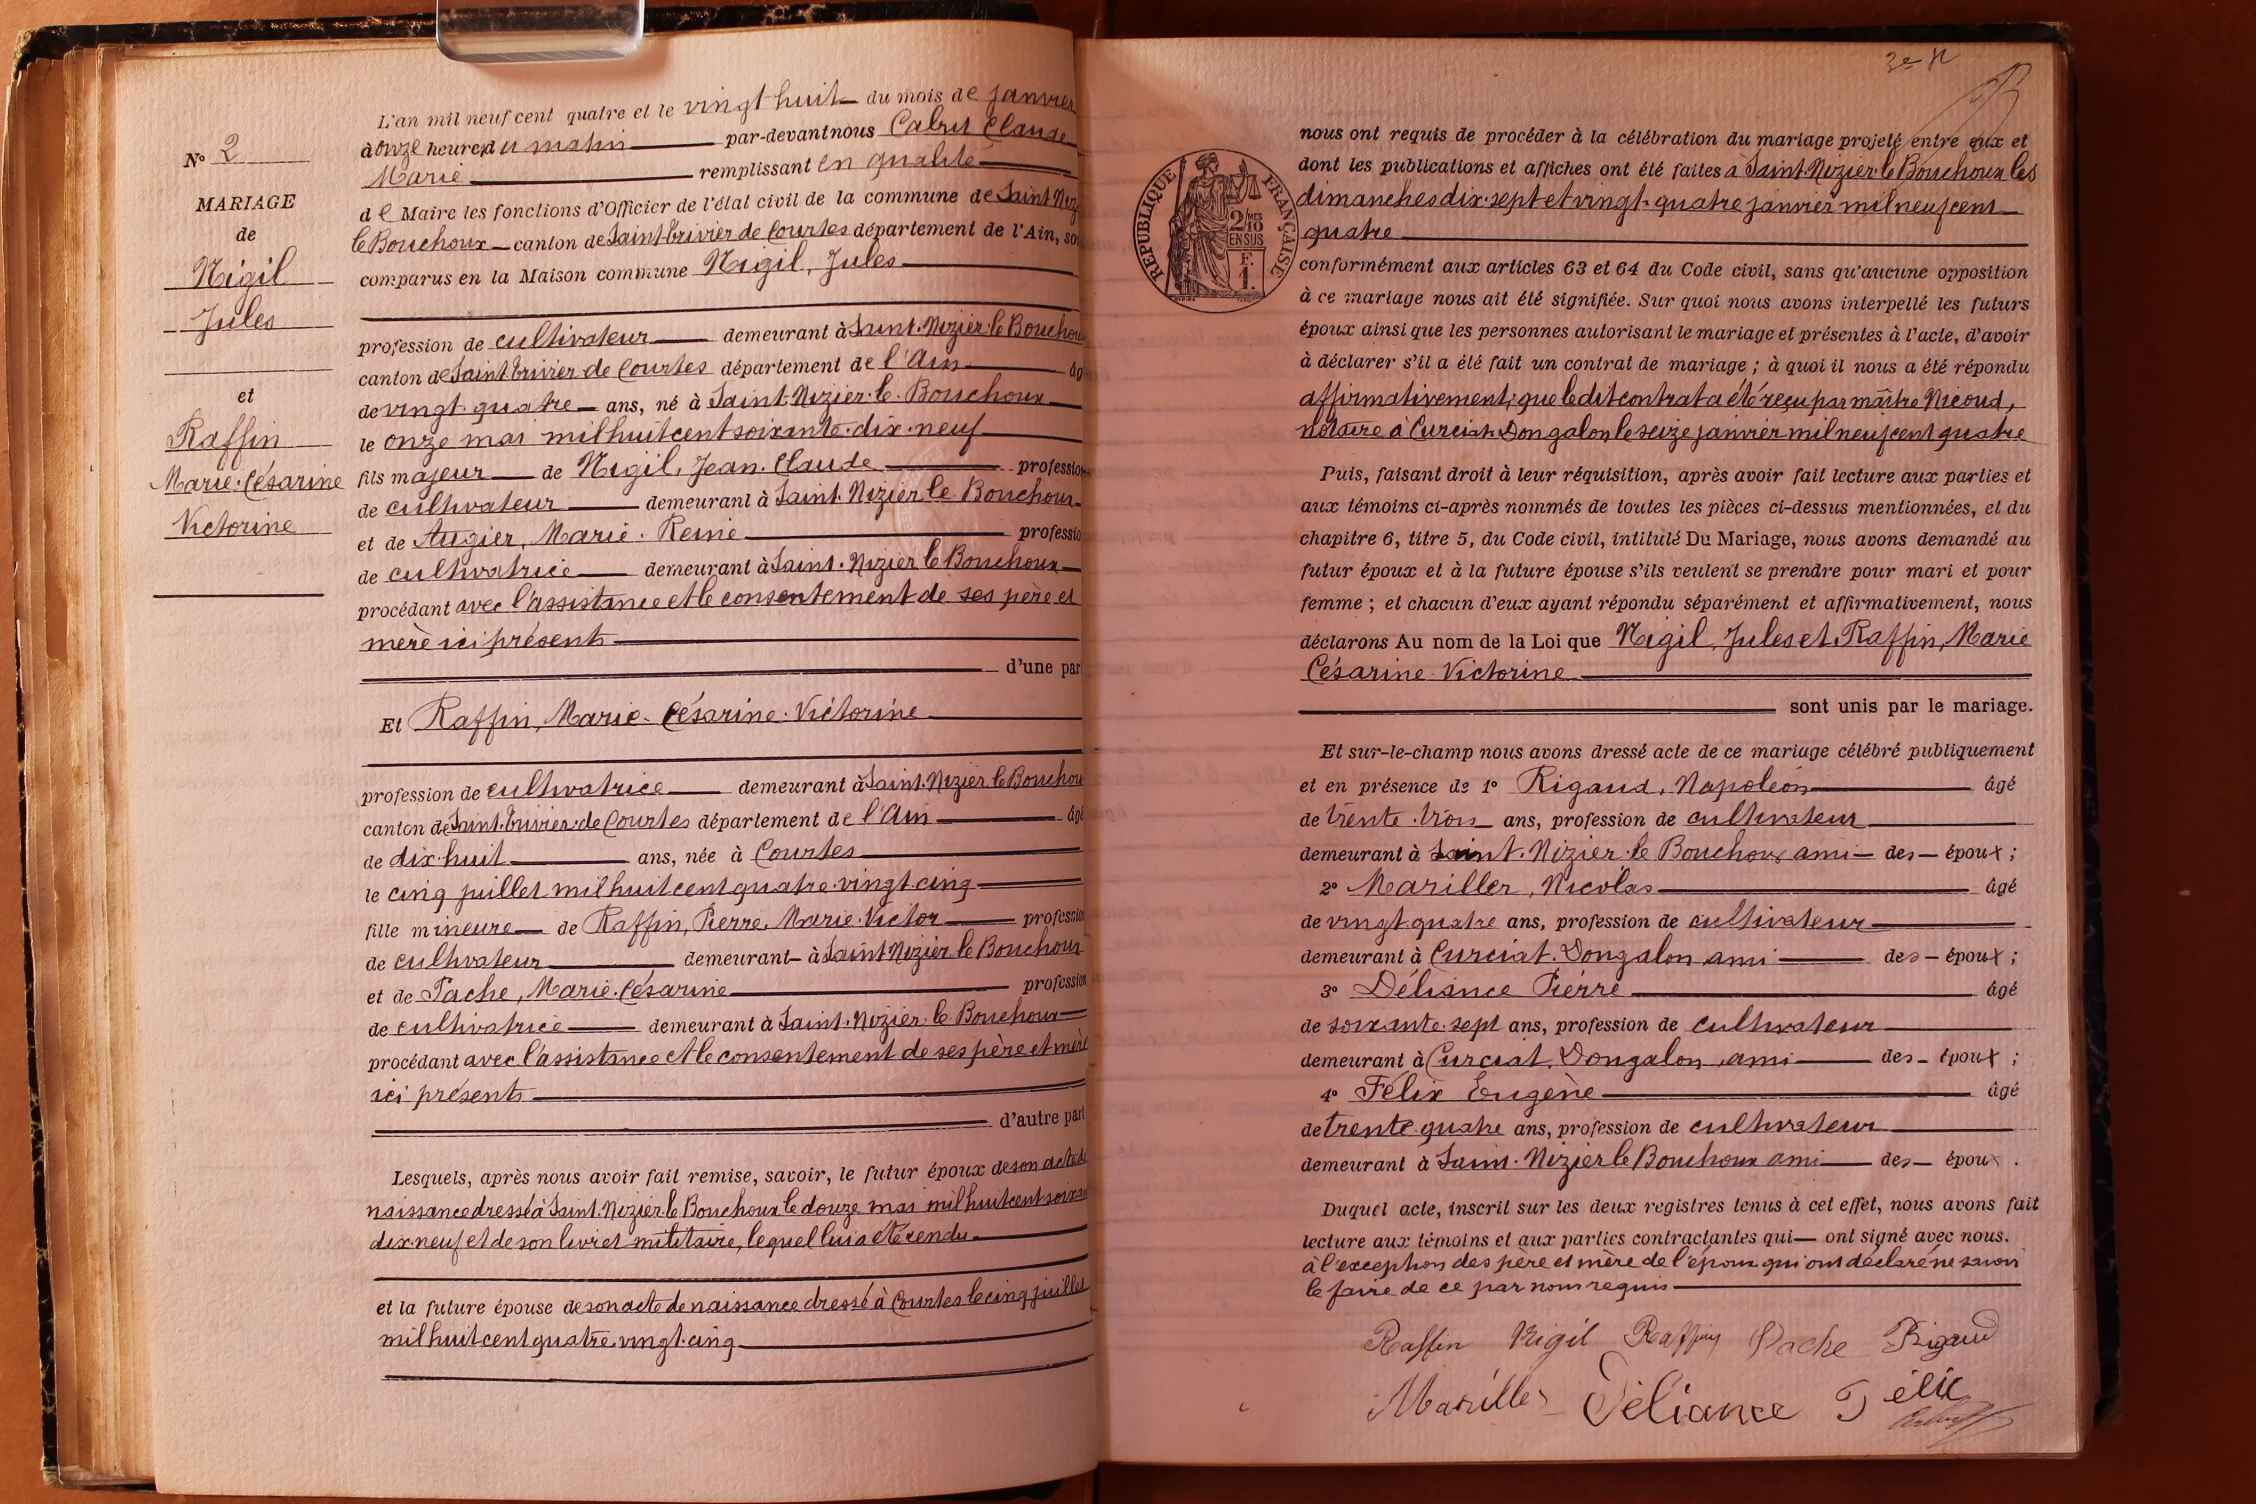 N° 2
MARIAGE
de
Nigil
Jules
et
Raffin
Marie-Césarine
Victorine
L'an mil neuf cent quatre et le vingt huit du mois de janvier
à onze heures du matin par-devant nous Claude
Marie remplissant en qualité
de Maire les fonctions d'Officier de l'état civil de la commune de Saint-Niz
le Bouchoux canton de Saint-Trivier de Courtes département de l'Ain, so
comparus en la Maison commune Nigil, Jules
profession de cultivateur demeurant à Saint-Nizier-le Bouchou
canton de Saint-Trivier de Courtes département de l'Ain âg
de vingt-quatre ans, né à Saint-Nizier-le-Bouchoux
le onze mai mil huit cent soixante-dix-neuf
fils majeur de Nigil, Jean-Claude profession
de cultivateur demeurant à Saint-Nizier le Bouchoux
et de Augier, Marie-Reine professio
de cultivatrice demeurant à Saint-Nizier le Bouchoux
procédant avec l'assistance et le consentement de ses père et
mère ici présents
d'une par
Et Raffin, Marie-Césarine-Victorine
profession de cultivatrice demeurant à Saint-Nizier le Bouchou
canton de Saint-Trivier-de Courtes département de l'Ain âgé
de dix-huit ans, née à Courtes
le cinq juillet mil huit cent quatre-vingt-cinq
fille mineure de Raffin, Pierre, Marie-Victor profession
de cultivateur demeurant à Saint Nizier-le Bouchoux
et de Pache, Marie-Césarine profession
de cultivatrice demeurant à Saint-Nizier-le Bouchoux
procédant avec l'assistance et le consentement de ses père et mère
ici présents
d'autre part
Lesquels, après nous avoir fait remise, savoir, le futur époux de son acte de
naissance dressé à Saint-Nizier-le Bouchoux le douze mai mil huit cent soixan
dix-neuf et de son livret militaire, lequel lui a été rendu
et la future épouse de son acte de naissance dressé à Courtes le cinq juillet
mil huit cent quatre-vingt-cinq
RÉPUBLIQUE FRANÇAISE
2/10 MES
EN SUS
F.
1.
nous ont requis de procéder à la célébration du mariage projeté entre eux et
dont les publications et affiches ont été faites à Saint-Nizier-le Bouchoux les
dimanches dix-sept et vingt-quatre janvier mil neuf cent
quatre
conformément aux articles 63 et 64 du Code civil, sans qu'aucune opposition
à ce mariage nous ait été signifiée. Sur quoi nous avons interpellé les futurs
époux ainsi que les personnes autorisant le mariage et présentes à l'acte, d'avoir
à déclarer s'il a été fait un contrat de mariage ; à quoi il nous a été répondu
affirmativement, que le dit contrat a été reçu par maître Nicoud,
notaire à Curciat-Dongalon le seize janvier mil neuf cent quatre
Puis, faisant droit à leur réquisition, après avoir fait lecture aux parties et
aux témoins ci-après nommés de toutes les pièces ci-dessus mentionnées, et du
chapitre 6, titre 5, du Code civil, intitulé Du Mariage, nous avons demandé au
futur époux et à la future épouse s'ils veulent se prendre pour mari et pour
femme ; et chacun d'eux ayant répondu séparément et affirmativement, nous
déclarons Au nom de la Loi que Nigil, Jules et Raffin, Marie
Césarine-Victorine
sont unis par le mariage.
Et sur-le-champ nous avons dressé acte de ce mariage célébré publiquement
et en présence de 1° Rigaud, Napoléon âgé
de trente-trois ans, profession de cultivateur
demeurant à Saint-Nizier-le Bouchoux ami des époux ;
2° Mariller, Nicolas âgé
de vingt quatre ans, profession de cultivateur
demeurant à Curciat-Dongalon ami des époux ;
3° Déliance Pierre âgé
de soixante-sept ans, profession de cultivateur
demeurant à Curciat-Dongalon, ami des époux ;
4° Félix Eugène âgé
de trente-quatre ans, profession de cultivateur
demeurant à Saint-Nizier le Bouchoux ami des époux.
Duquel acte, inscrit sur les deux registres tenus à cet effet, nous avons fait
lecture aux témoins et aux parties contractantes qui ont signé avec nous.
à l'exception des père et mère de l'époux qui ont déclaré ne savoir
le faire de ce par nous requis
Raffin Nigil Raffin Pache Rigaud
Mariller Déliance Félix